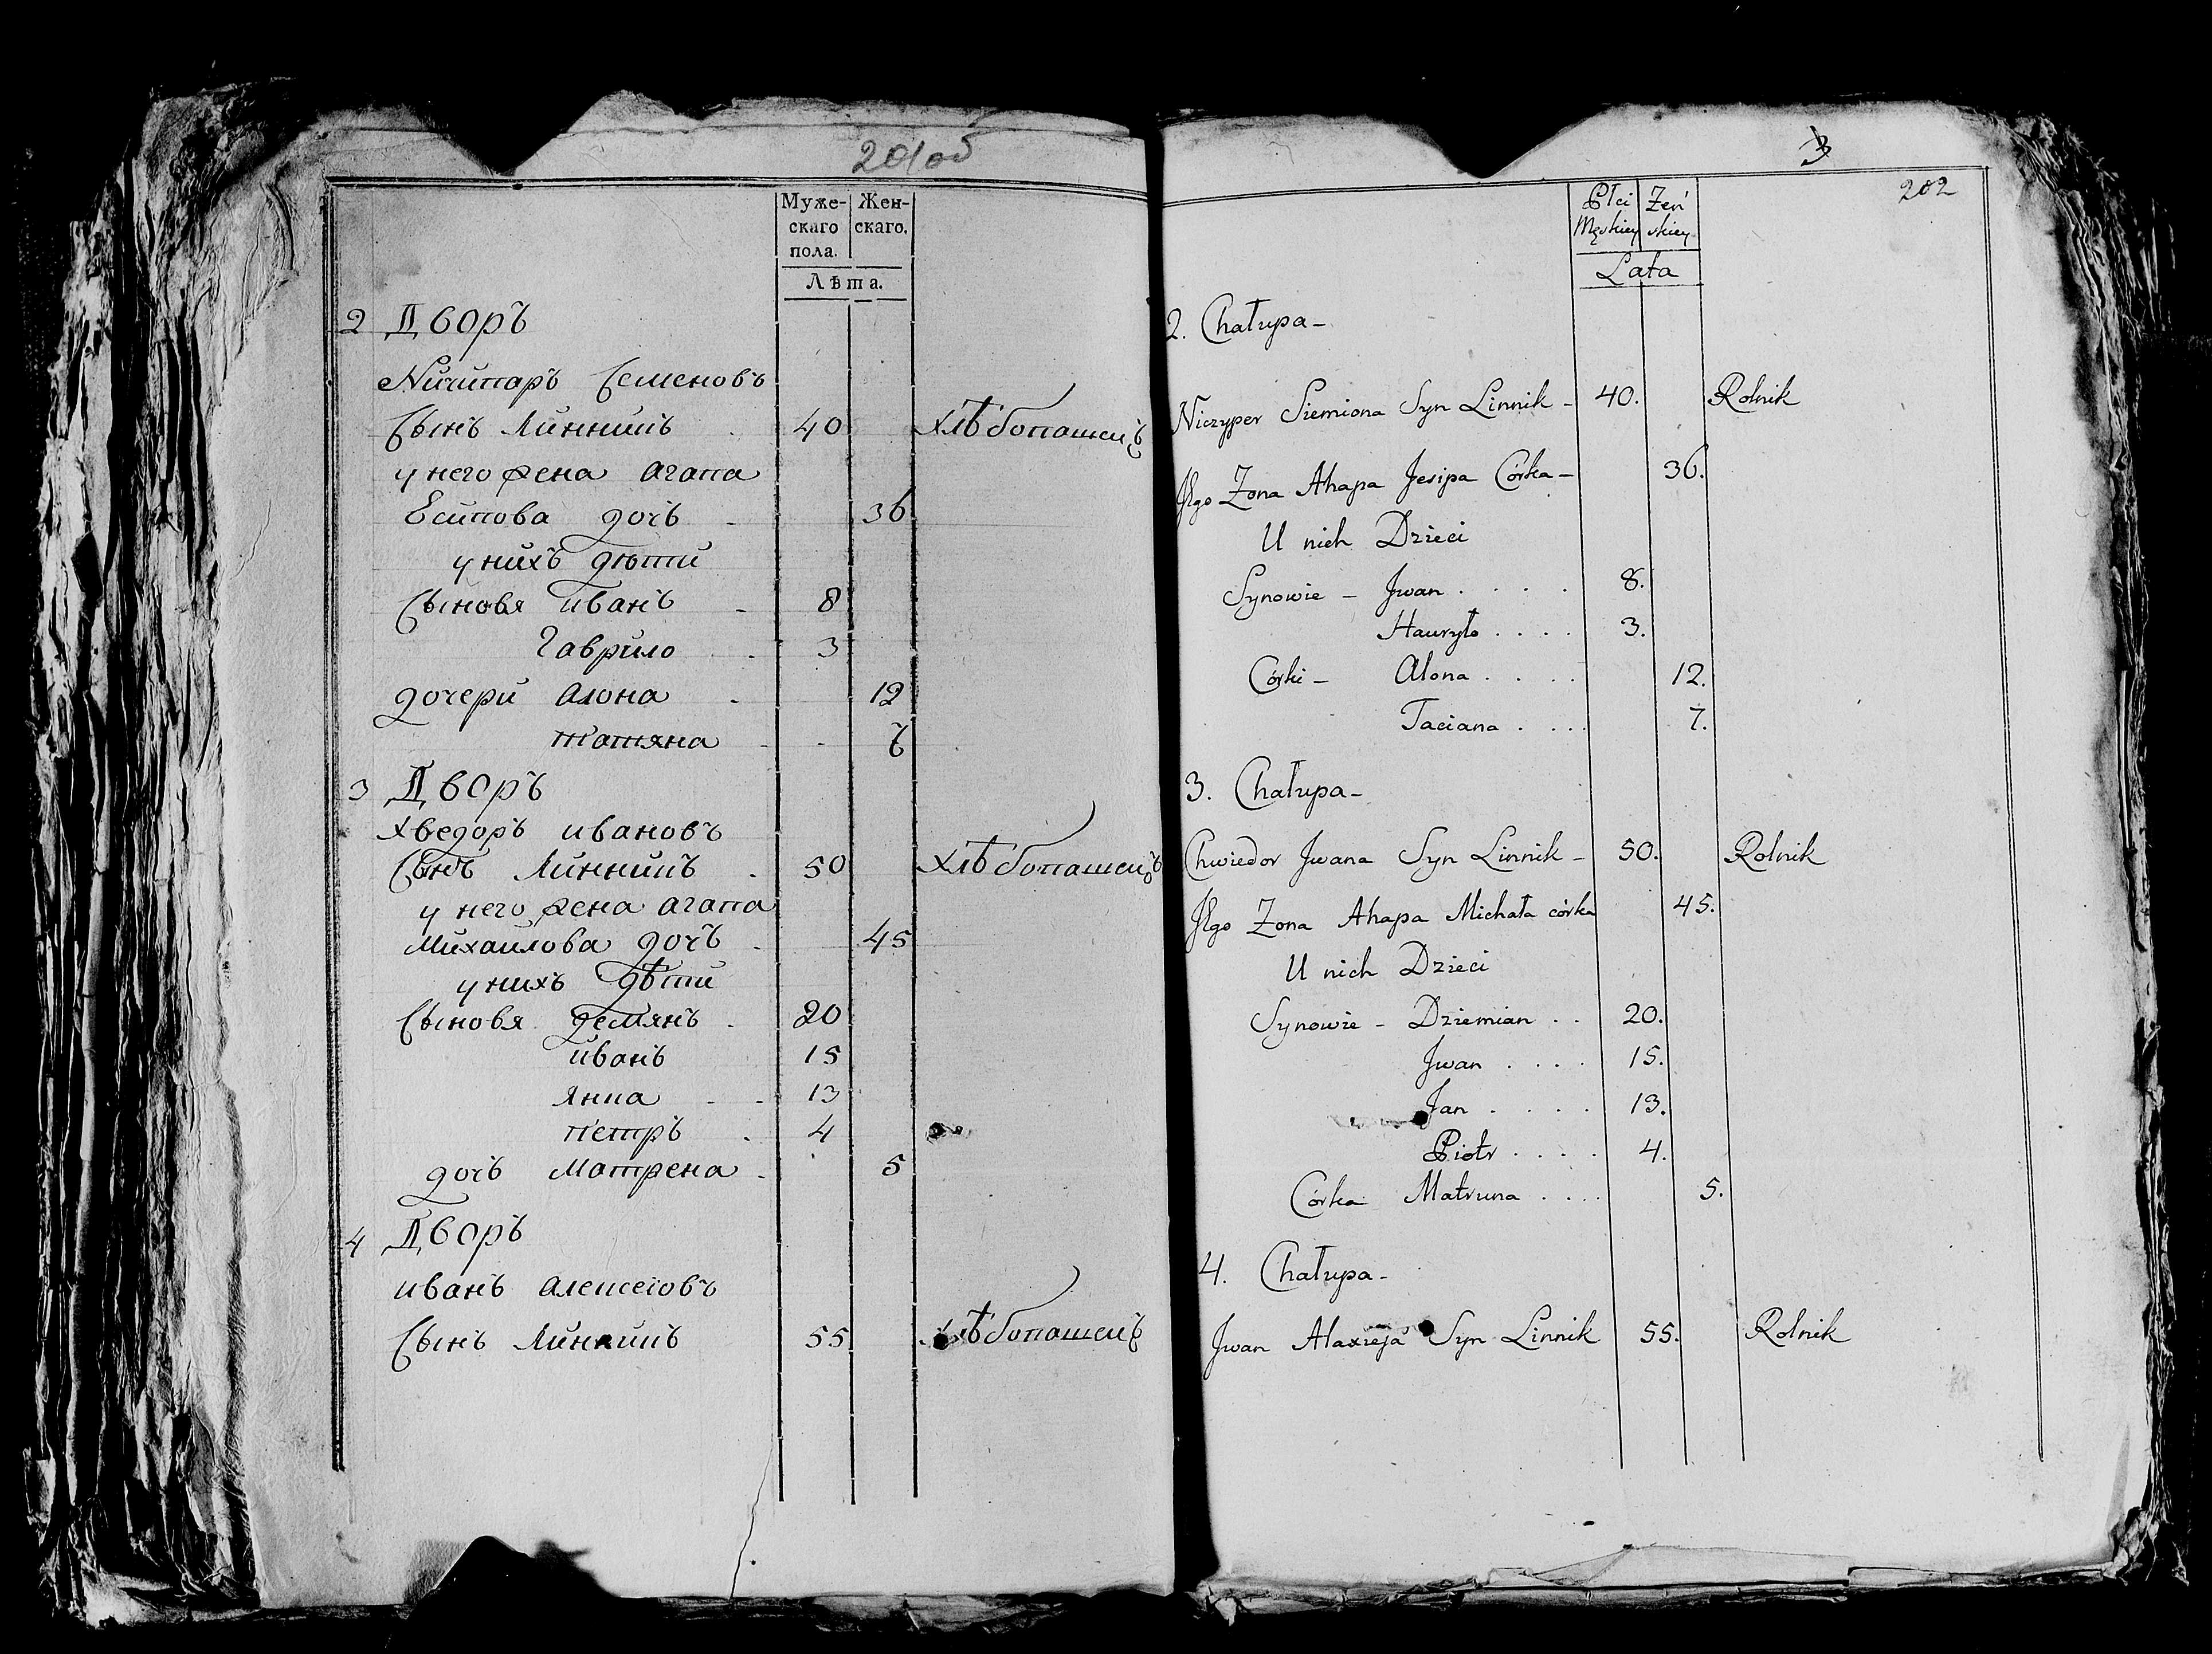 201об
Муже- Жен-
скаго скаго.
пола.
Лѣта.
2 Дворъ
Ничипаръ Семеновъ
Сынъ Линникъ 40 хлѣбопашецъ
у него жена агапа
Есипова дочь - 36
у нихъ дѣти
Сыновя иванъ - 8
Гаврило . 3
дочери алона . 12
татяна - 7
3 Дворъ
хведоръ ивановъ
Сынъ Линникъ . 50 хлѣбопашецъ
у него жена агапа
Михаилова дочь . 45
у нихъ дѣти
Сыновя демянъ . 20
иванъ 15
Янка - - 13
петръ . 4
дочь Матрена . 5
4 Дворъ
иванъ алексеiовъ
Сынъ Линникъ 55 хлѣбопашецъ
3
202
Płci Zeń
Męskiey skiey
Lata
2. Chałupa -
Niczyper Siemiona Syn Linnik - 40. Rolnik
Jego Zona Ahapa Jesipa Córka - 36.
U nich Dzieci
Synowie - Jwan . . . . 8.
Hauryło . . . . 3.
Córki - Alona . . . . 12.
Taciana . . . . 7.
3. Chałupa -
Chwiedor Jwana Syn Linnik - 50. Rolnik
Jego Zona Ahapa Michała córka 45.
U nich Dzieci
Synowie - Dziemian . . 20.
Jwan . . . . 15.
Jan . . . . 13.
Piotr . . . . 4.
Córka Matruna . . . . 5.
4. Chałupa -
Jwan Alaxieja Syn Linnik 55. Rolnik